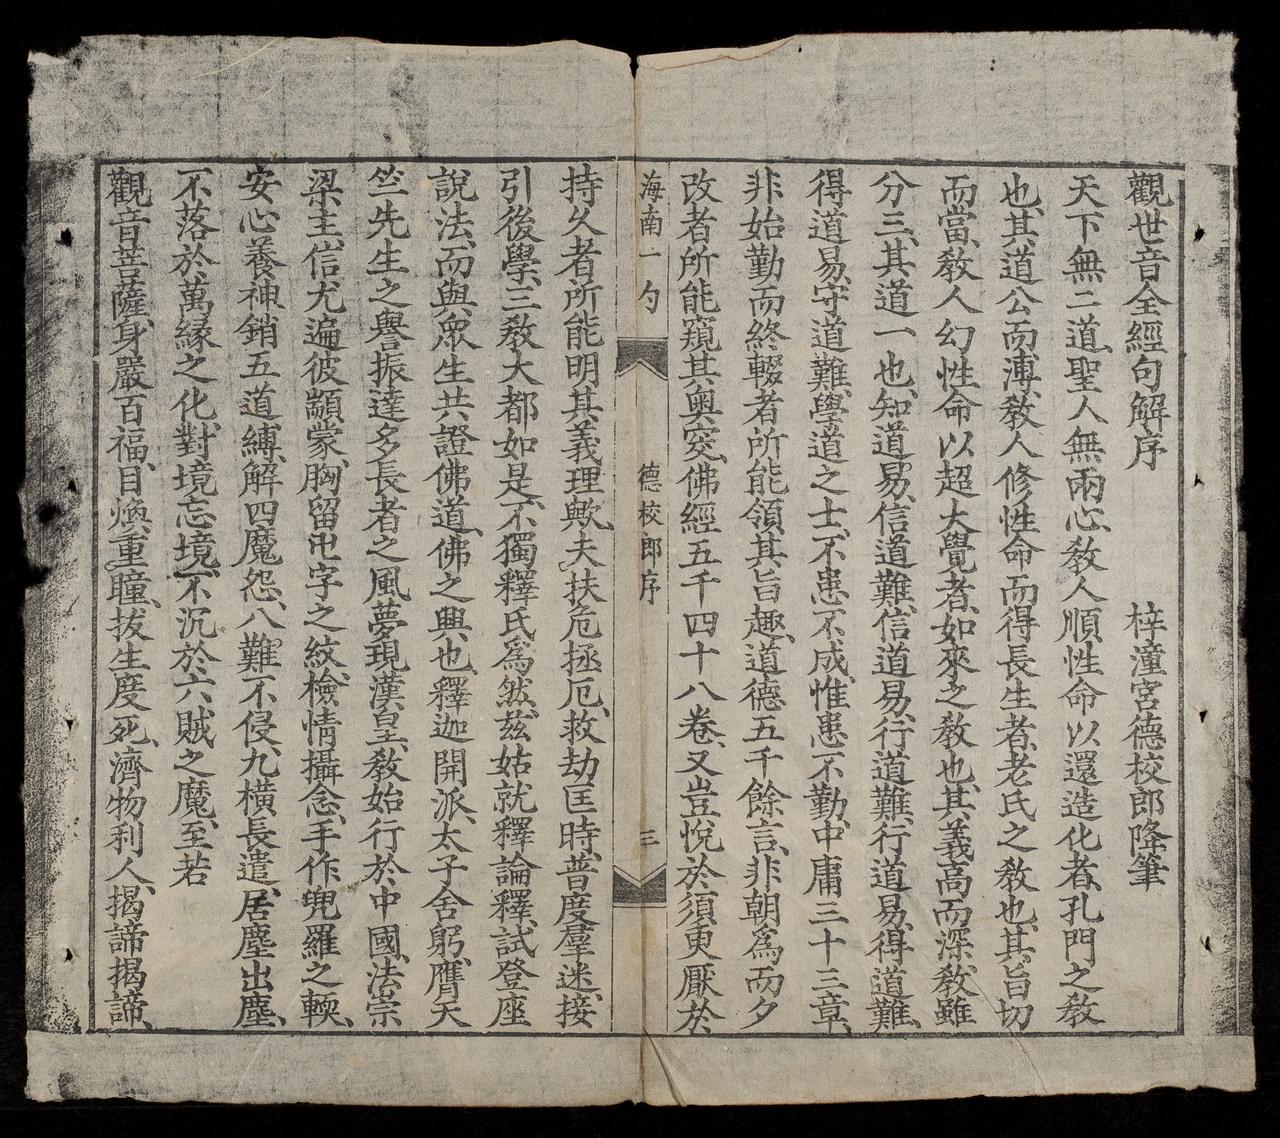 觀世音全經句解序　梓潼宮德校郎降筆
天下無二道、聖人無兩心、敎人順性命以還造化者、孔門之敎
也、其道公而溥、敎人修性命而得長生者、老氏之敎也、其旨切
而當、敎人幻性命以超大覺者、如來之敎也、其義高而深、敎雖
分三、其道一也、知道易、信道難、信道易、行道難、行道易、得道難、
得道易、守道難、學道之士、不患不成、惟患不勤、中庸三十三章、
非始勤而終輟者所能領其旨趣、道德五千餘言、非朝為而夕
改者所能窺其奧窔、佛經五千四十八卷、又豈悅於須臾厭於
海南一勺　德校郎序　三
持久者所能明其義理歟、夫扶危拯厄、救劫匡時、普度羣迷、接
引後學、三敎大都如是、不獨釋氏為然、茲姑就釋論釋、試登座
說法、而與眾生共證佛道、佛之興也、釋迦開派、太子舍躬、膺天
竺先生之譽、振達多長者之風、夢現漢皇、敎始行於中國、法宗
梁主、信尤遍彼顓蒙、胸留卍字之紋、檢情攝念、手作兜羅之輭、
安心養神、銷五道縛、解四魔怨、八難不侵、九橫長遣、居塵出塵、
不落於萬緣之化、對境忘境、不沉於六賊之魔、至若
觀音菩薩、身嚴百福、目煥重瞳、拔生度死、濟物利人、揭諦揭諦、